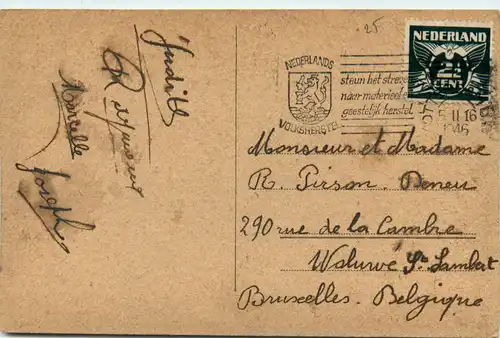 Judith
Marcelle
Joseph
25
NEDERLAND
2½
CENT
NEDERLANDS
VOLKSHERSTEL
steun het
naar materieel
geestelijk herstel
5 II 16
1946
Monsieur et Madame
R. Pirson. Deneu
290 rue de la Cambre
Woluwé St Lambert
Bruxelles. Belgique